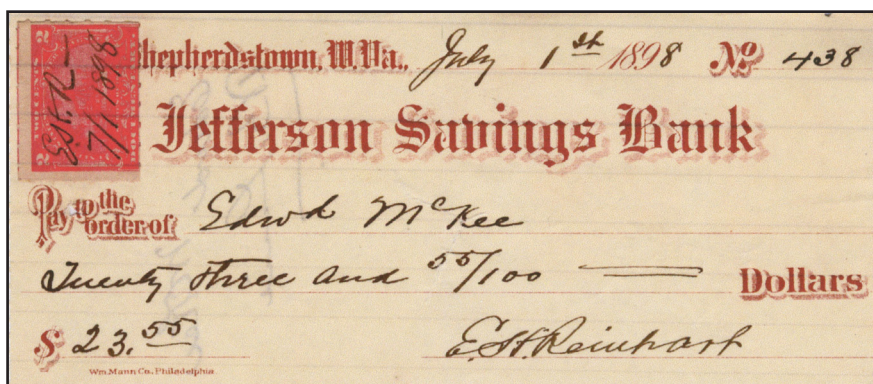 Shepherdstown, W.Va., July 1st 1898 No 438
E.H.R—
7/1 1898
Jefferson Savings Bank
Pay to the order of Edwd McKee
Twenty three and 55/100 Dollars
$ 23.55 E.H. Reinhart
Wm. Mann Co. Philadelphia.